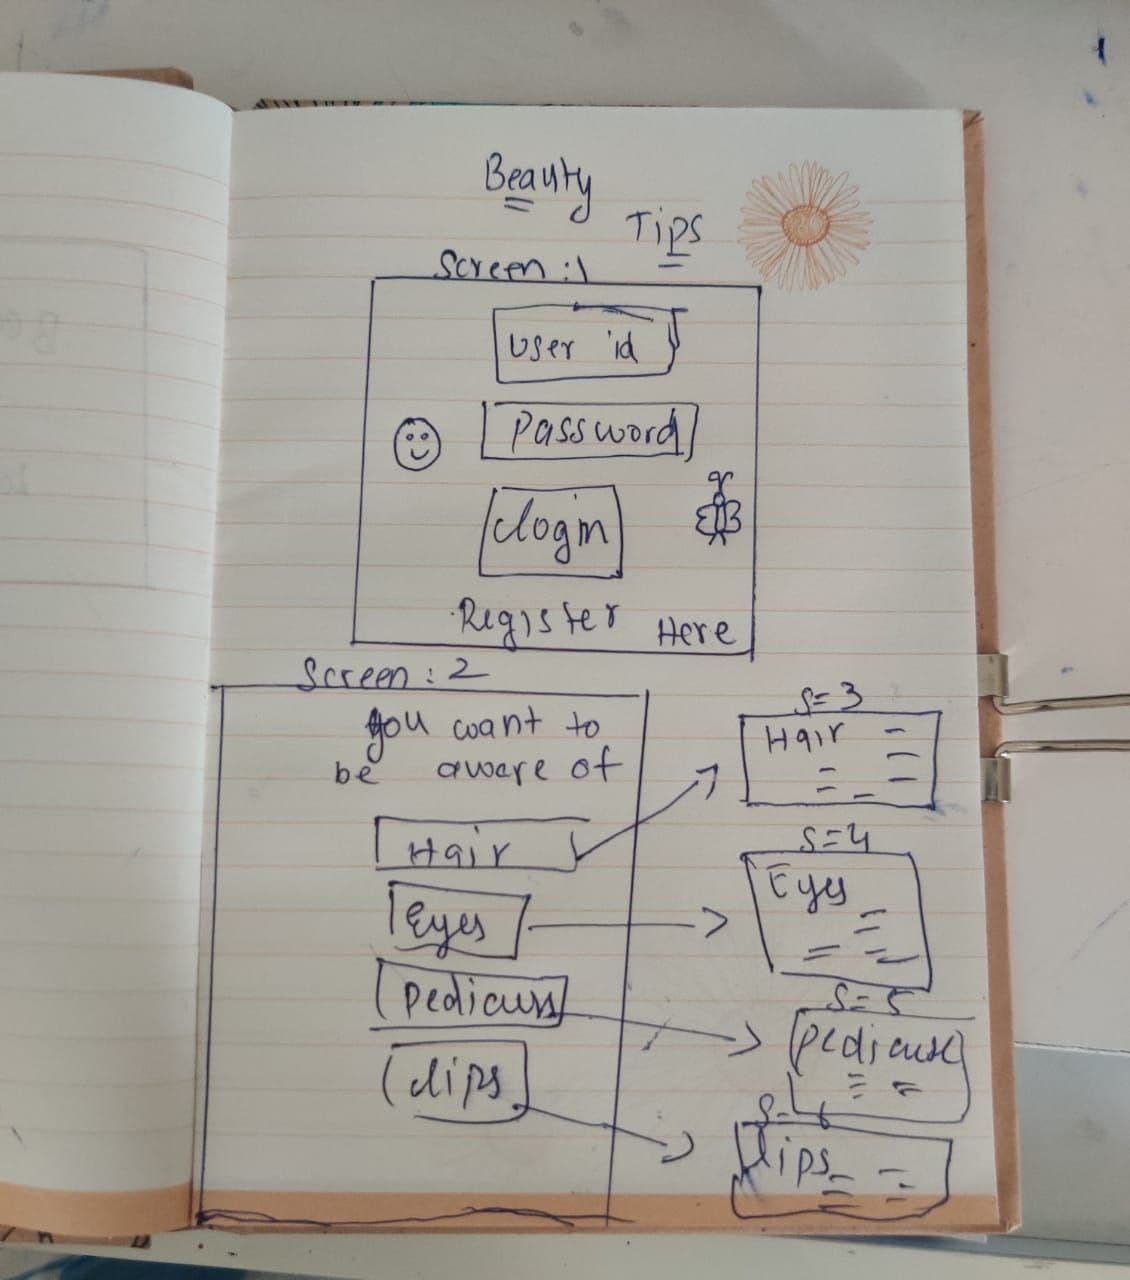 Beauty
Tips
Screen :1
User id
Password
Login
Register Here
Screen : 2
you want to
be aware of
Hair
Eyes
Lips
S=3
Hair
S=4
Eyes
S=5
Lips